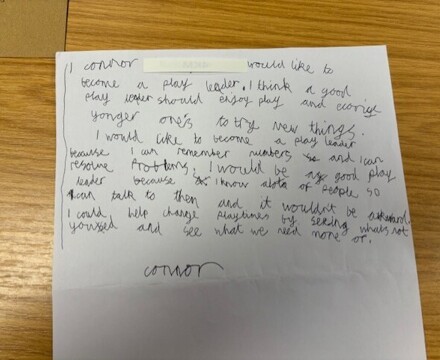 I connor would like to
become a play leader. I think a good
play leader should enjoy play and
yonger one's to try new things.
I would like to become a play leader
because I can remember numbers and I can
resolve problems. I would be a good play
leader because I know alot of people so
I can talk to them and it wouldn't be
I could help change playtimes by seeing whats not
yoused and see what we need none of.
connor